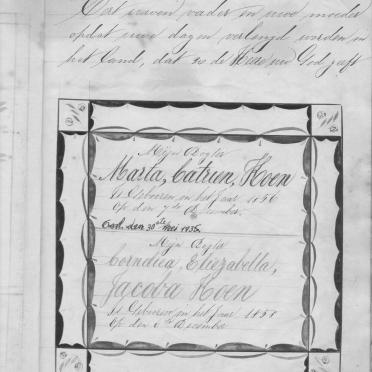 Eert uwen vader en uwe moeder
opdat uwe dagen verlengd worden in
het land, dat u de Heere uw God geeft
Mijn Dogter
Marta, Catrien, Hoen
Is Gebooren in het Jaar 1856
Op den 7de December
Overl. den 30ste Mei 1935.
Mijn Dogter
Cornelica, Eliezabella,
Jacoba Hoen
Is Gebooren in het Jaar 1858
Op den December